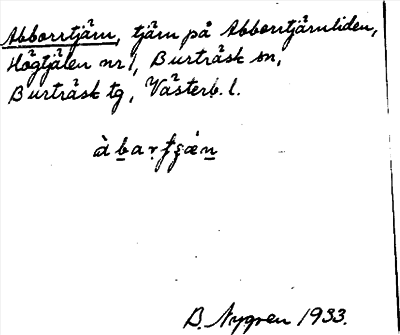 Abborrtjärn, tjärn på Abborrtjärnliden,
Högtjälen nr 1, Burträsk sn,
Burträsk tg, Västerb. l.
B. Nygren 1933.